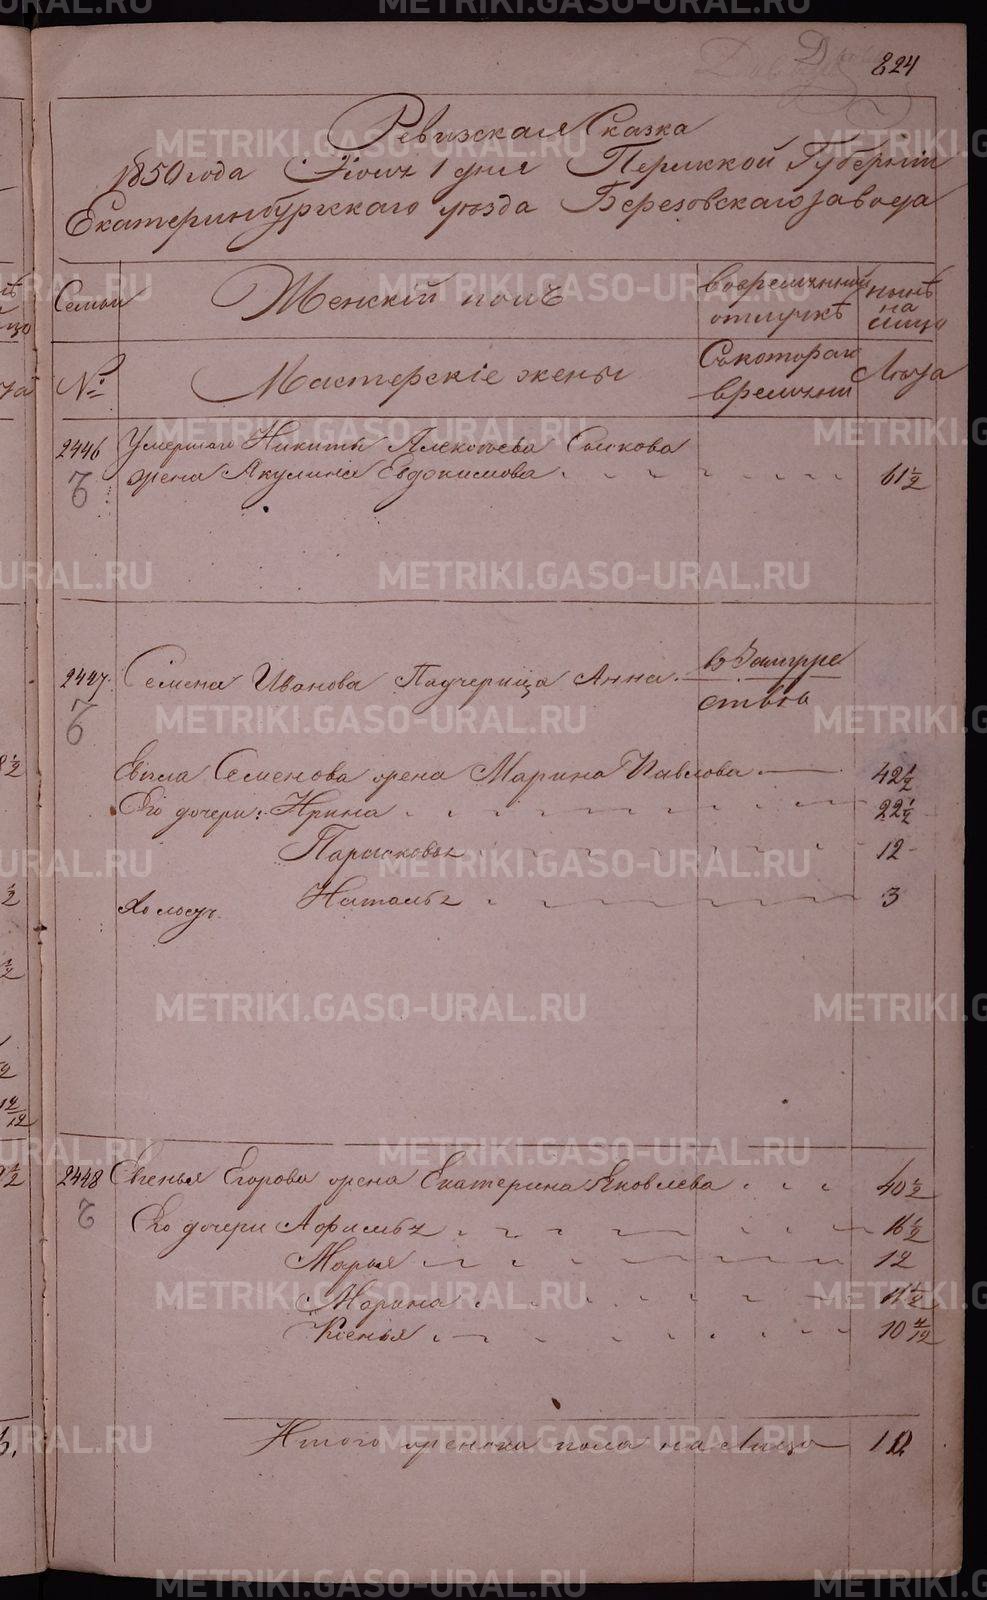 824
Ревизская Сказка
1850 года Июня 1 дня Пермской Губернiи
Екатеринбургскаго уѣзда Березовскаго завода
Семьи
Женскiй полъ
во временной отлучкѣ
нынѣ на лицо
№
Мастерскiе жены
Съ котораго времяни
Лѣта
2446 Умершаго Никиты Алексѣева Сычкова
жена Акулина Евдокимова 61 1/2
2447 Семена Иванова Падчерица Анна в Замуже
ствѣ
Семенова жена Марина Павлова 42 1/2
Его дочери: Ирина 22 1/2
Парасковья 12
Наталья 3
2448 Евгенья Егорова жена Екатерина Яковлева 40 1/2
Его дочери Афимья 16 1/2
Марья 12
Марина 11 1/2
Ксенья 10 4/12
Итого женска пола на Лицо 10
METRIKI.GASO-URAL.RU